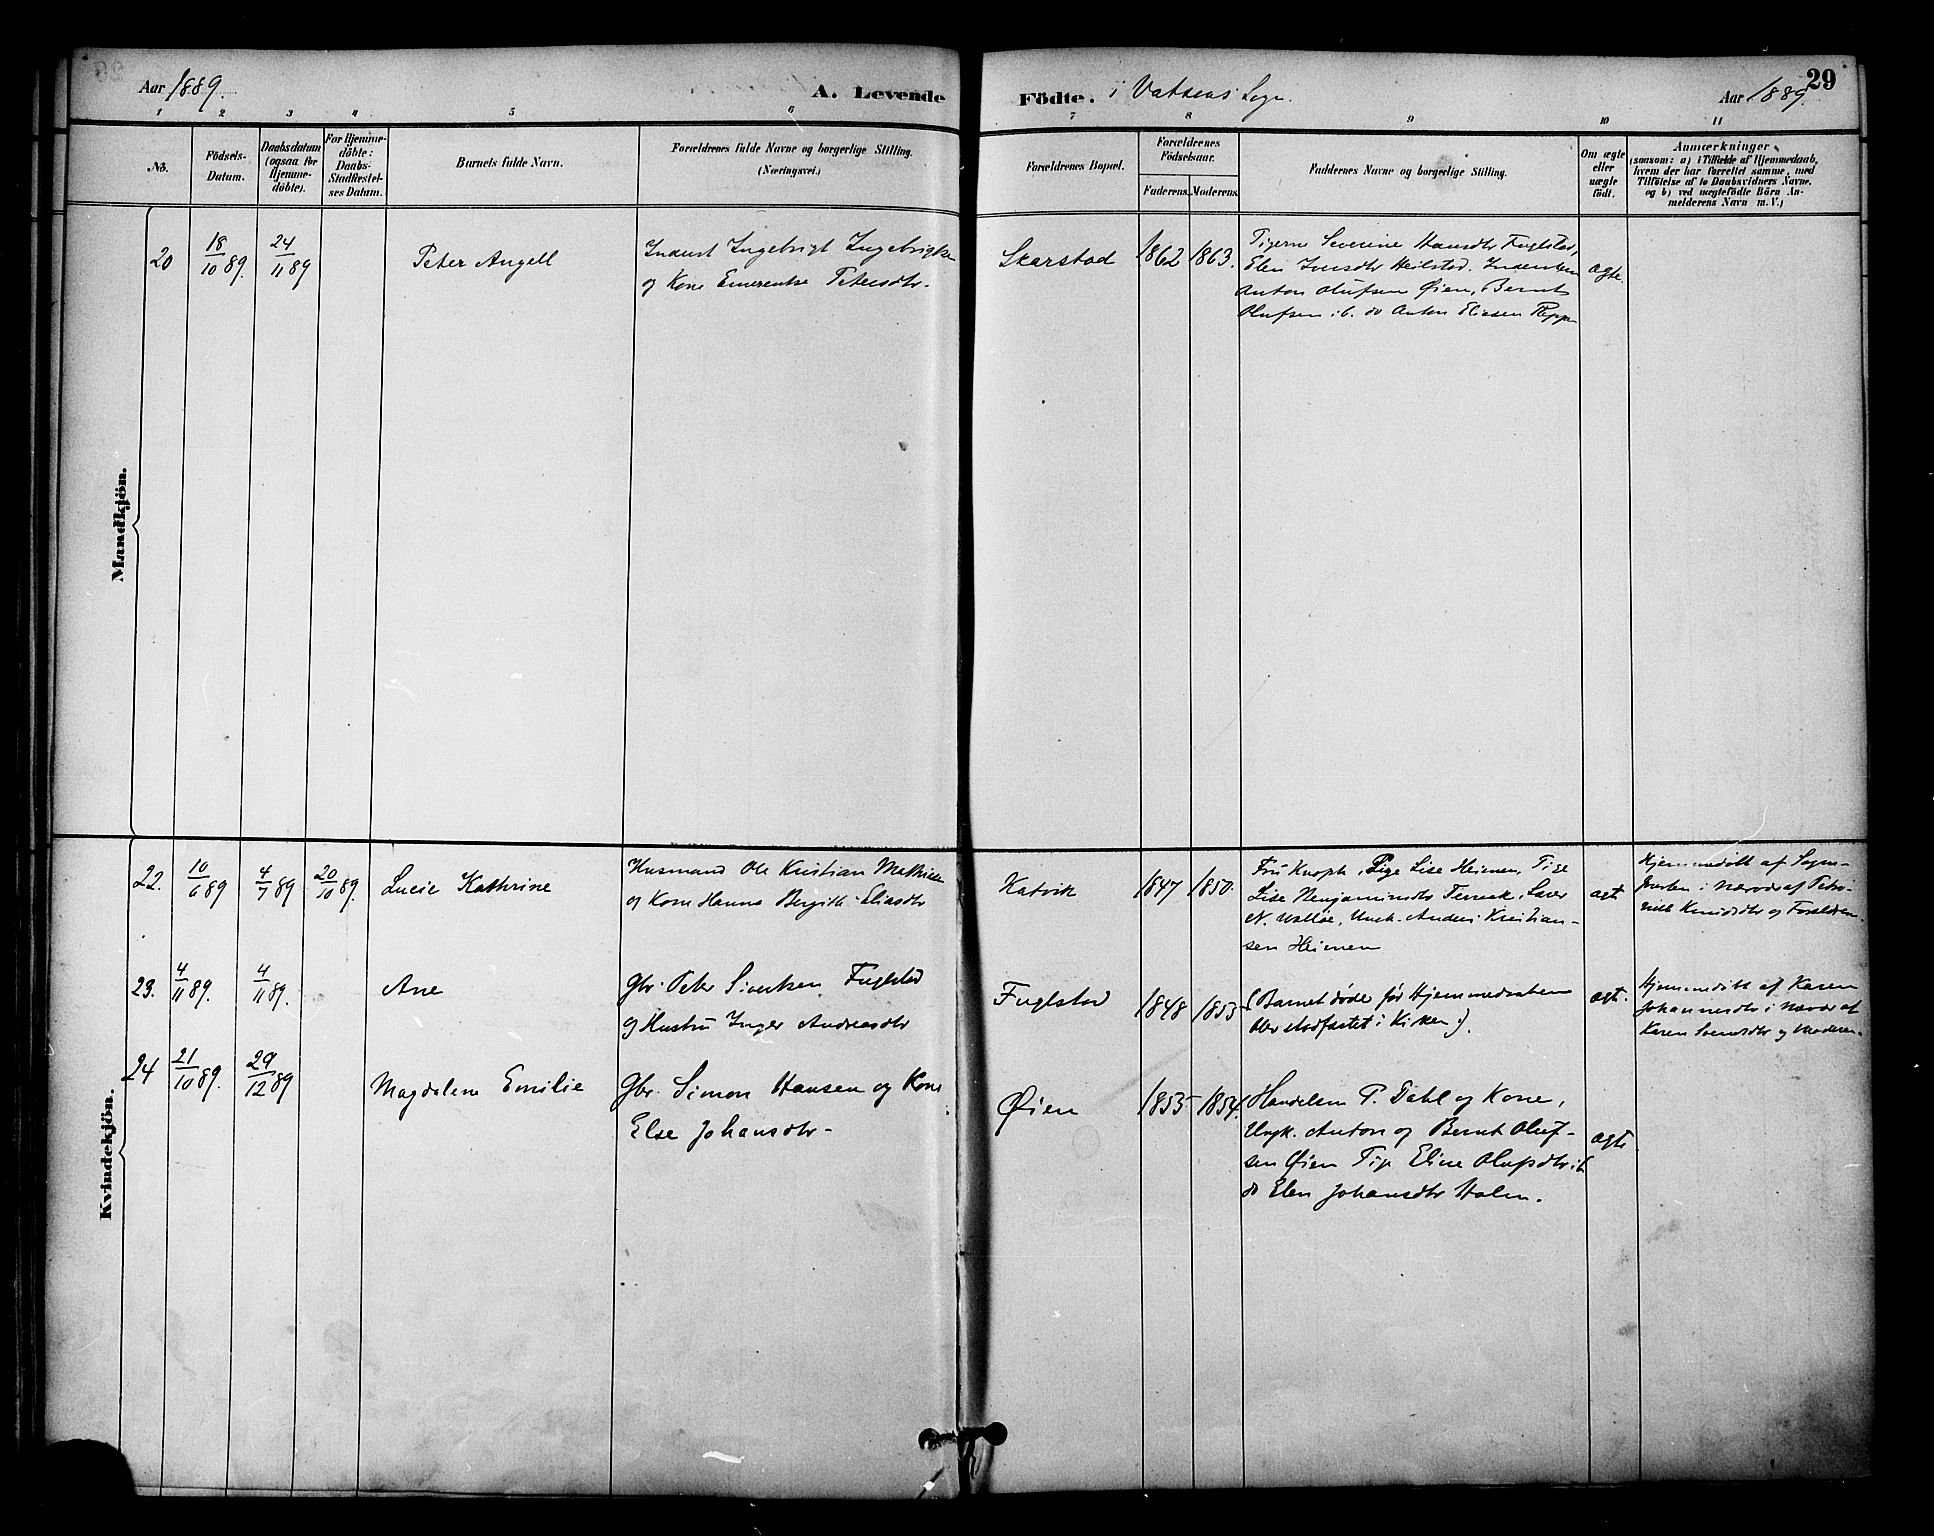 Aar 1889.
A. Levende Födte. i Vatsens Sogn.
Aar 1889.
29
1 2 3 4 5 6 7 8 9 10 11
No.
Födsels-Datum.
Daabsdatum (ogsaa for Hjemme-döbte).
For Hjemme-döbte: Daabs-Stadfæstel-ses Datum.
Barnets fulde Navn.
Forældrenes fulde Navne og borgerlige Stilling. (Næringsvei.)
Forældrenes Bopæl.
Forældrenes Födselsaar.
Faderens. Moderens.
Faddernes Navne og borgerlige Stilling.
Om ægte eller uægte födt.
Anmærkninger
(saasom: a) i Tilfælde af Hjemmedaab,
hvem der har forrettet samme, med
Tilföielse af to Daabsvidners Navne,
og b) ved uægtefödte Börn An-
melderens Navn m. V.)
Mandkjön.
20
18/10 89.
24/11 89
Peter Angell
Inderst Ingebrigt Ingebrigtsen
og Kone Emerentse Petersdtr.
Skarstad
1862 1863.
Pigerne Severine Hansdtr Fuglstad,
Elen Iversdtr Heilstad.
Anton Olufsen Øien, Bernt
Olufsen ib. do Anton Eliasen
ægte.
Kvindekjön.
22.
10/6 89
4/7 89
20/10 89.
Lucie Kathrine
Husmand Ole Kristian Mathisen
og Kone Hanna Bergitte Eliasdtr
Katvik
1847 1850.
Fru Knoph, Pige Lise Heimen, Pige
Lise Benjaminsdtr
N. Ungk. Anders Kristian-
sen Heimen
ægt
Hjemmedöbt af Sogne-
præsten i Nærvær af Petro-
nille Knudsdtr og Forældrene.
23.
4/11 89.
4/11 89.
Ane
Gbr. Peter Sivertsen Fuglstad
og Hustru Inger Andreasdtr
Fuglstad
1848 1853
(Barnet døde før Hjemmedaaben
blev stadfæstet i Kirken.)
ægt.
Hjemmedöbt af Karen
Johannesdtr i Nærvær af
Karen Svendsdtr og Moderen.
24
21/10 89.
29/12 89
Magdalena Emilie
Gbr. Simon Hansen og Kone
Else Johansdtr.
Øien
1853 1854.
Handelsm P. Dahl og Kone,
Ungk. Anton og Bernt Oluf-
sen Øien Pige Eline Olufsdtr ib
do Elen Johansdtr Holm.
ægte